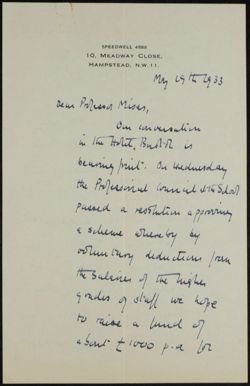 SPEEDWELL 4888
10, MEADWAY CLOSE,
HAMPSTEAD, N.W. 11.
May 19th 1933
Dear Professor Mises,
Our conversation
in the Hotel, Bristol is
bearing fruit. On Wednesday
the Professorial Council of the School
passed a resolution approving
a scheme whereby by
voluntary deductions from
the salaries of the higher
grades of staff we hope
to raise a fund of
about £1000 p.a for